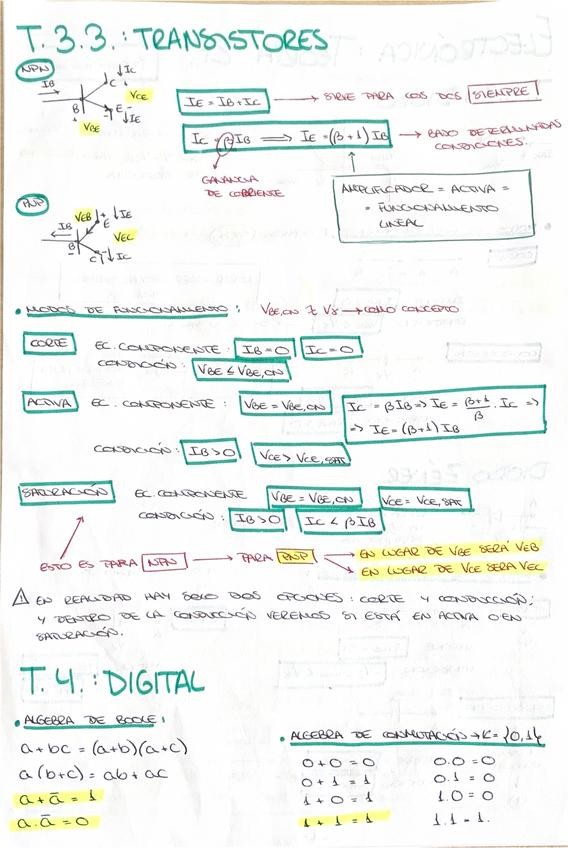 T.3.3.: TRANSISTORES
NPN
IB
C ↓IC
VCE
B
E ↓IE
VBE
IE = IB + IC → SIRVE PARA LOS DOS SIEMPRE!
IC = βIB ⟹ IE = (β+1) IB → BAJO DETERMINADAS CONDICIONES.
GANANCIA DE CORRIENTE
AMPLIFICADOR = ACTIVA =
= FUNCIONAMIENTO
LINEAL
PNP
VEB + ↓IE
IB
E
VEC
B
C ↓IC
• MODOS DE FUNCIONAMIENTO: VBE,ON ≠ Vγ → COMO CONCEPTO
CORTE EC. COMPONENTE: IB = 0 IC = 0
CONDICIÓN: VBE ≤ VBE,ON
ACTIVA EC. COMPONENTE: VBE = VBE,ON IC = βIB ⇒ IE = β+1/β · IC ⇒
⇒ IE = (β+1) IB
CONDICIÓN: IB > 0 VCE > VCE,SAT
SATURACIÓN EC. COMPONENTE VBE = VBE,ON VCE = VCE,SAT
CONDICIÓN: IB > 0 IC < βIB
ESTO ES PARA NPN → PARA PNP → EN LUGAR DE VBE SERÁ VEB
→ EN LUGAR DE VCE SERÁ VEC
⚠ EN REALIDAD HAY SOLO DOS OPCIONES: CORTE Y CONDUCCIÓN;
Y DENTRO DE LA CONDUCCIÓN VEREMOS SI ESTÁ EN ACTIVA O EN
SATURACIÓN.
T.4.: DIGITAL
• ALGEBRA DE BOOLE:
a + bc = (a+b)(a+c)
a(b+c) = ab + ac
a + ā = 1
a . ā = 0
• ALGEBRA DE CONMUTACIÓN → K = {0,1}
0 + 0 = 0 0.0 = 0
0 + 1 = 1 0.1 = 0
1 + 0 = 1 1.0 = 0
1 + 1 = 1 1.1 = 1.